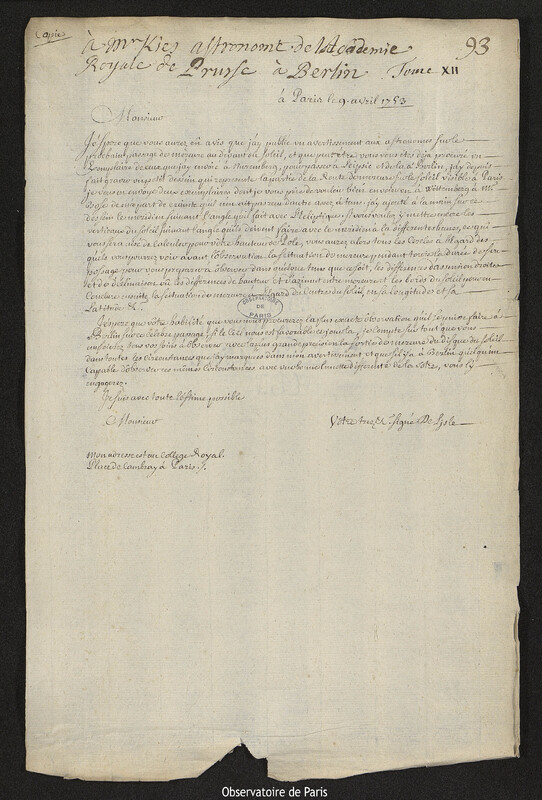 Copie
à Mr Kies astronome de l'Academie
Royale de Prusse à Berlin Tome XII
93
à Paris le 9 avril 1753
Monsieur
J'espere que vous aurez eu avis que j'ay publié un avertissement aux astronomes sur le
prochain passage de mercure au devant du Soleil, et que peut etre vous vous etes deja procuré un
Exemplaire de ceux que j'ay envoié à Nuremberg, pour passer à Leipsic et de là à Berlin, j'ay depuis
fait graver un petit dessein qui represente la partie de la Route de mercure sur le Soleil visible à Paris
je vous en envoye deux exemplaires dont je vous prie de vouloir bien en envoier à Wittemberg à Mr
Bose de ma part de crainte qu'il n'en ait pas reçu d'autre avec, à tous j'ay ajouté à la main sur ce
dessein le meridien suivant l'angle qu'il fait avec l'Ecliptique; si vous voulez y mettre même les
verticaux du Soleil suivant l'angle qu'ils doivent faire avec le meridien à la differentes heures, ce qui
vous sera aisé de calculer pour votre hauteur de Pole, vous aurez alors tous les Cercles à l'egard des
quels vous pourrez voir avant l'observation la situation de mercure pendant toute la durée de son
passage pour vous preparer à observer dans quelque tems que ce soit, les differences d'ascension droite
et de déclinaison ou les differences de hauteur et d'azimut entre mercure et les bords du Soleil pour en
Conclure ensuite la situation de mercure à l'egard du Centre du Soleil, en sa longitude et sa
Latitude &.
OBSERVATOIRE DE PARIS
J'espere que votre habileté que vous nous procurerez la plus exacte observation qu'il se puisse faire à
Berlin sur ce celebre passage, si le Ciel nous est favorable ce jour la, je compte sur tout que vous
emploierez tous vos soins à observer avec la plus grande precision la sortie de mercure du disque du Soleil
dans toutes les circonstances que j'ay marquées dans mon avertissement et que s'il y a à Berlin quelqu'un
Capable d'observer ces mêmes Circonstances avec une lunette differente de la votre, vous l'y
engagerez.
Je suis avec toute l'estime possible
Monsieur
Votre tres & Signé De Lisle
Mon adresse est au College Royal
Place de Cambray à Paris
Observatoire de Paris